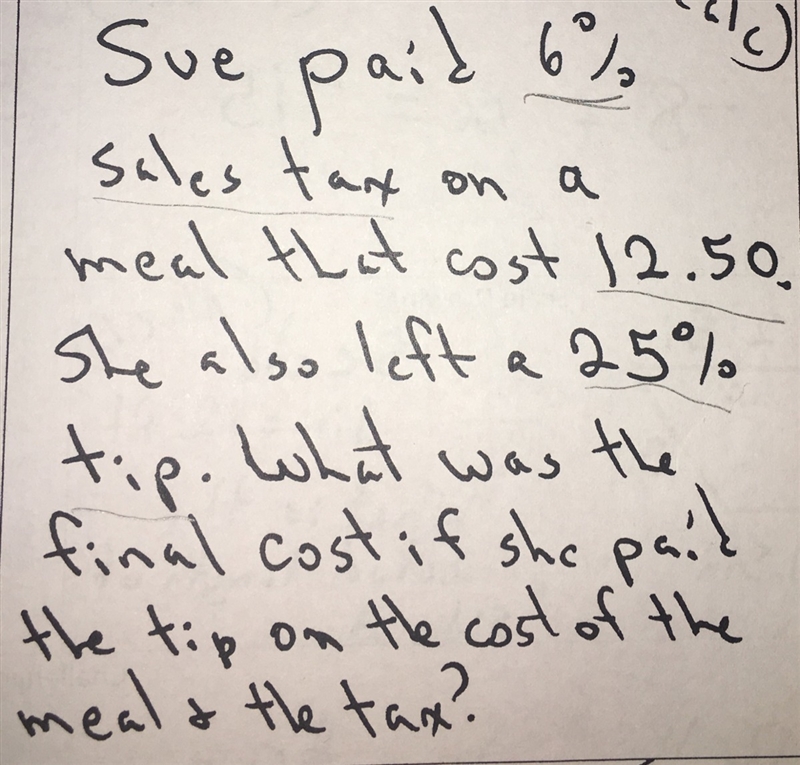 Sue paid 6%
sales tax on a
meal that cost 12.50.
She also left a 25%
tip. What was the
final cost if she paid
the tip on the cost of the
meal & the tax?